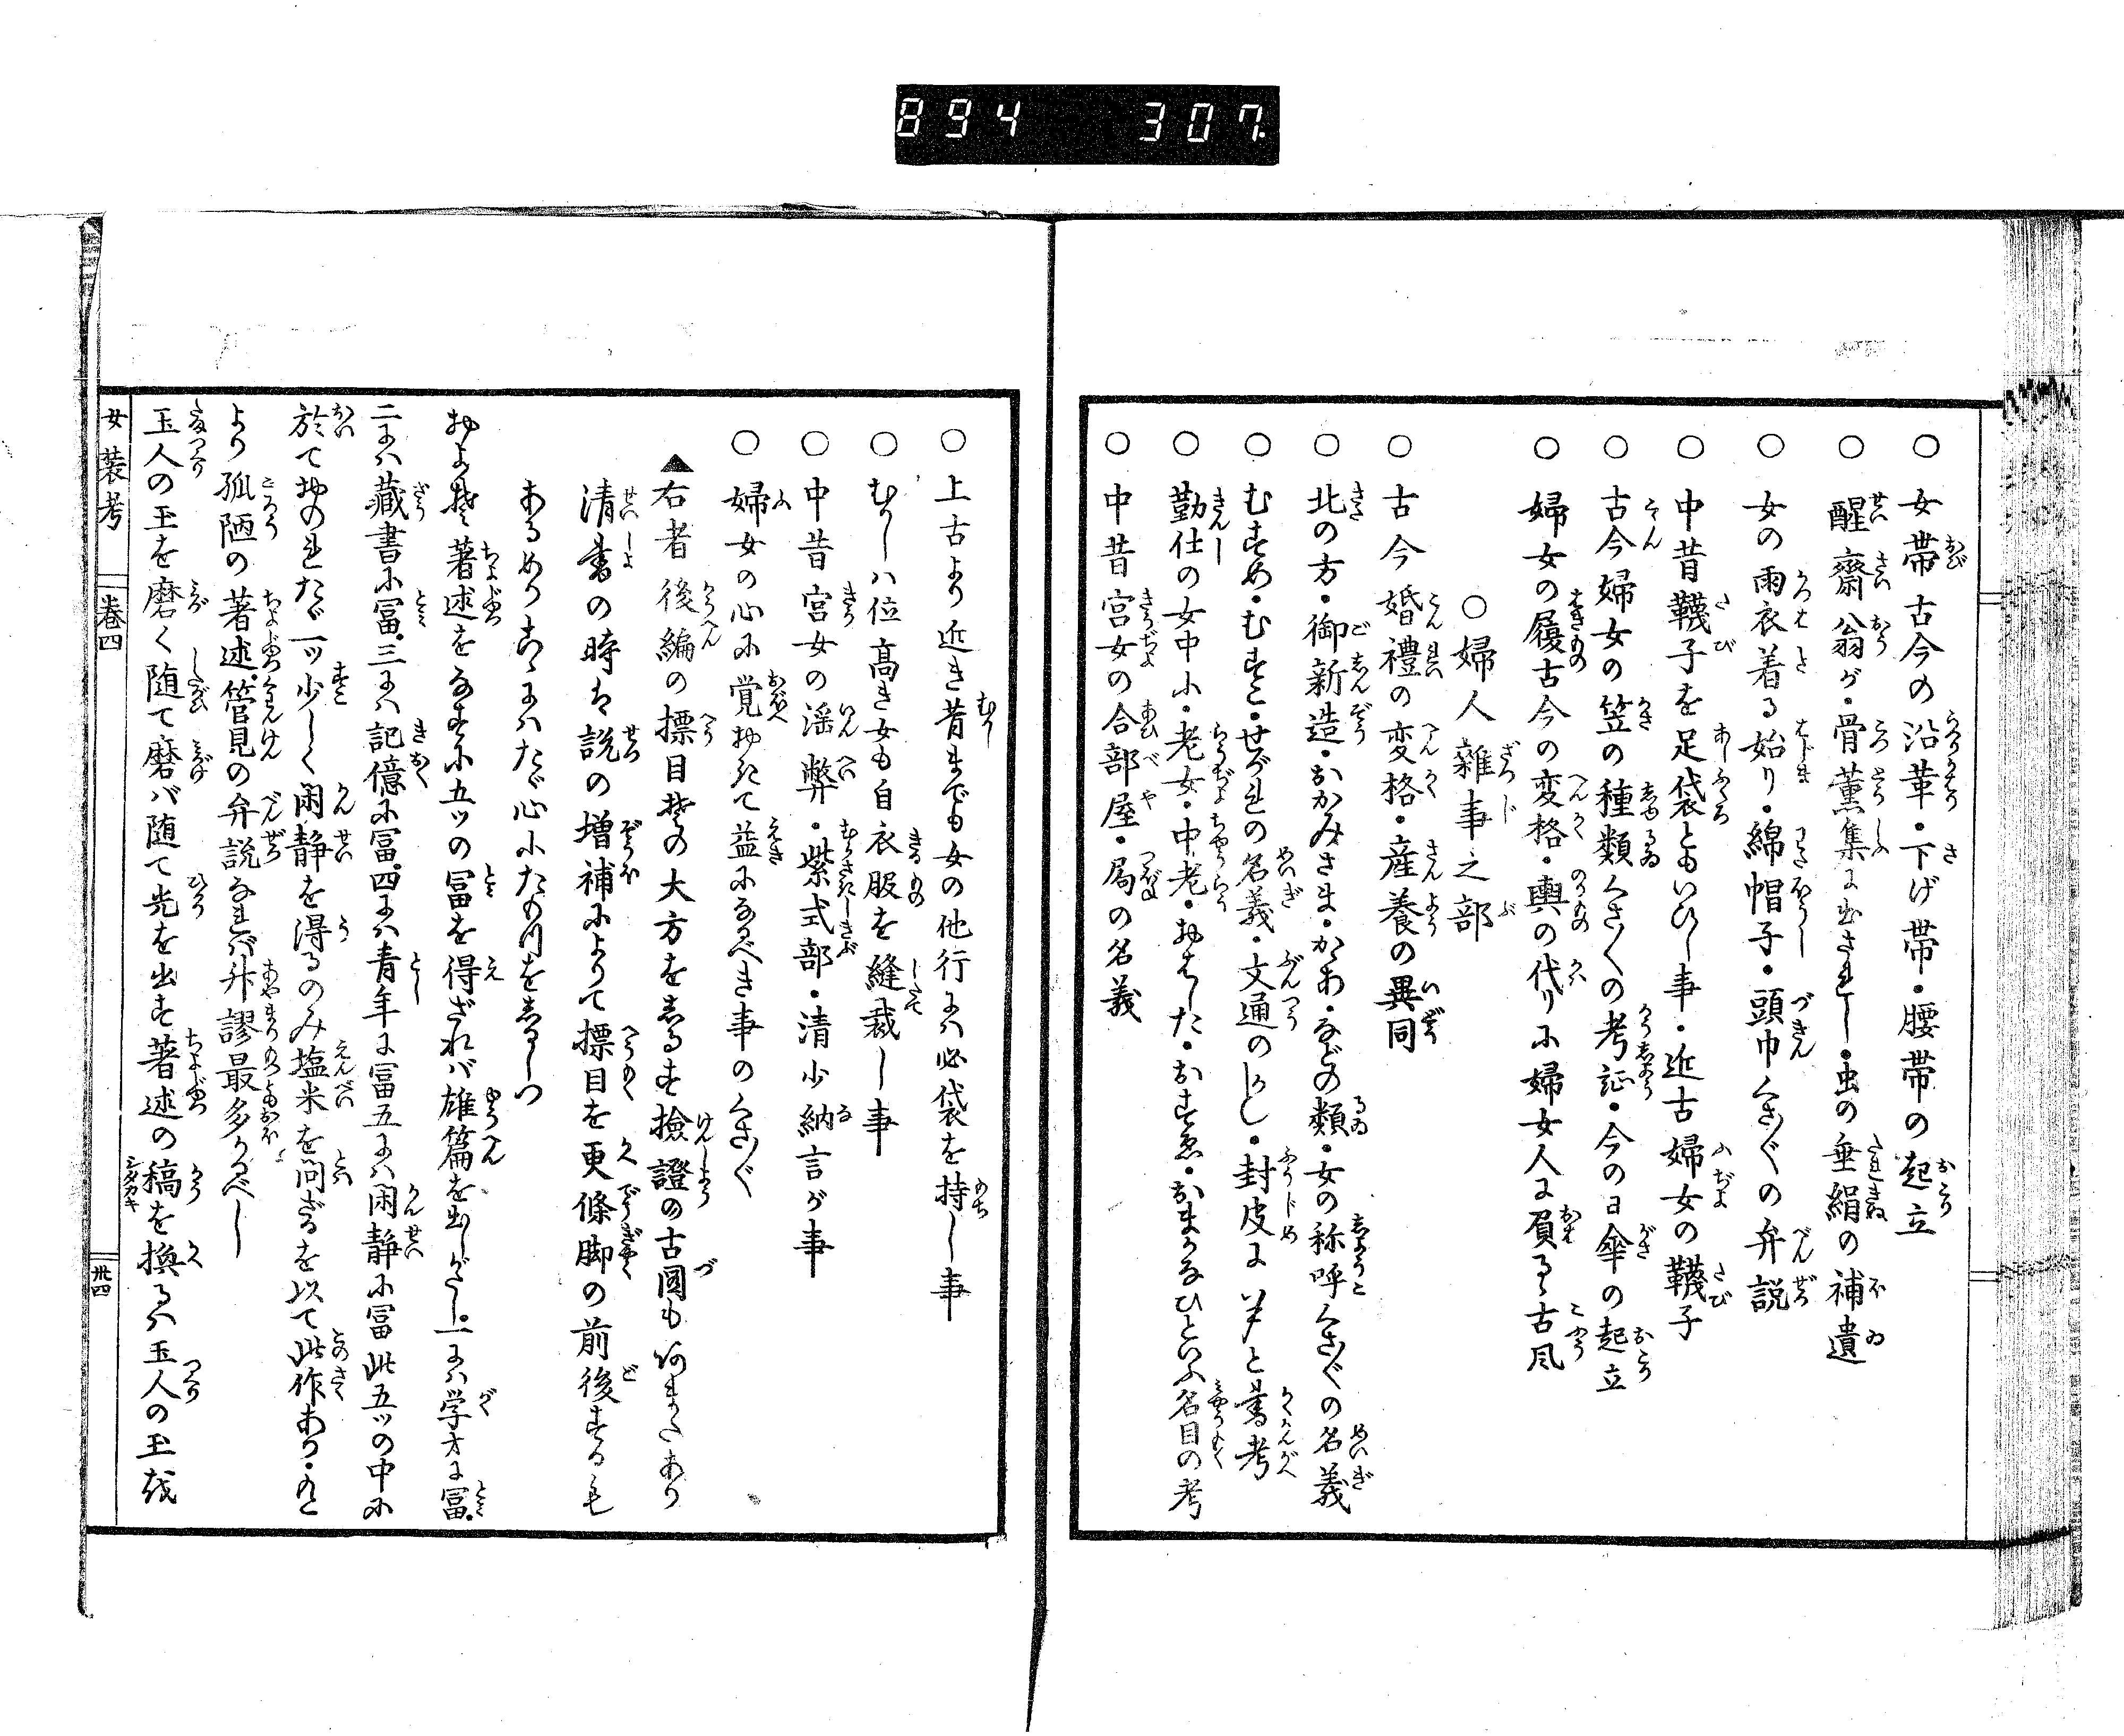 894 307.
○女帯古今の沿革・下げ帯・腰帯の起立
○醒齋翁が・骨董集に出されし・虫の垂絹の補遺
○女の雨衣着る始り・綿帽子・頭巾くさ〴〵の弁説
○中昔韈子を足袋ともいひし事・近古婦女の韈子
○古今婦女の笠の種類くさ〴〵の考証・今の日傘の起立
○婦女の履古今の変格・輿の代りに婦女人に負るゝ古風
○婦人雑事之部
○古今婚禮の変格・産養の異同
○北の方・御新造・おかみさま・かゝあ・などの類・女の称呼くさ〴〵の名義
○むすめ・むすこ・せがれの名義・文通の・封皮に〆と書考
○勤仕の女中小・老女・中老・おはした・おすゑ・おまかなひといふ名目の考
○中昔宮女の合部屋・局の名義
○上古より近き昔までも女の他行には必袋を持し事
○むかしハ位高き女も自衣服を縫裁し事
○中昔宮女の淫弊・紫式部・清少納言が事
○婦女の心に覚おきて益になるべき事のくさ〴〵
▲右者後編の標目其の大方をしるす撿證の古圖もあまたあり
清書の時は説の増補によりて標目を更條脚の前後するも
あるめりこゝにはたゞ心にたのみをしるしつ
およそ著述をなすに五ツの冨を得ざれバ雄篇を出しがたし・一には学才に冨・
二には藏書に冨・三には記億に冨・四には青年に冨五には閑静に冨此五ツの中に
於ておのれたゞ一ツ少しく閑静を得るのみ塩米を問ざるを以て此作あり・
より孤陋の著述・管見の弁説なれバ舛謬最多かるべし
玉人の玉を磨く随て磨バ随て光を出す著述の稿を換るハ玉人の玉を
女装考 巻四 卅四